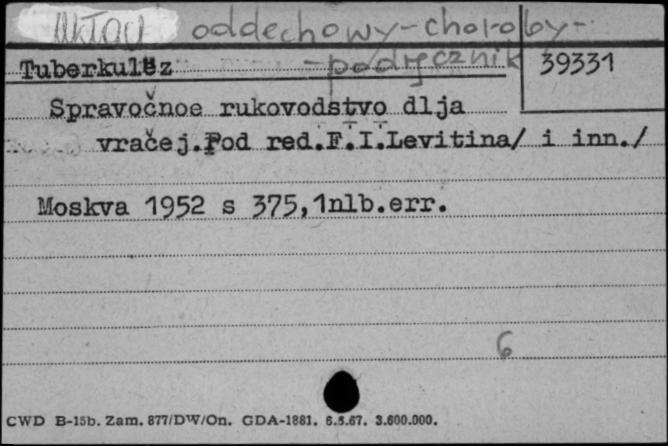 układ oddechowy-choroby-
-podręcznik
Tuberkulëz 39331
Spravočnoe rukovodstvo dlja
vračej.Pod red.F.I.Levitina/ i inn./
Moskva 1952 s 375,1nlb.err.
6
CWD B-15b. Zam. 877/DW/On. GDA-1881. 6.5.67. 3.600.000.